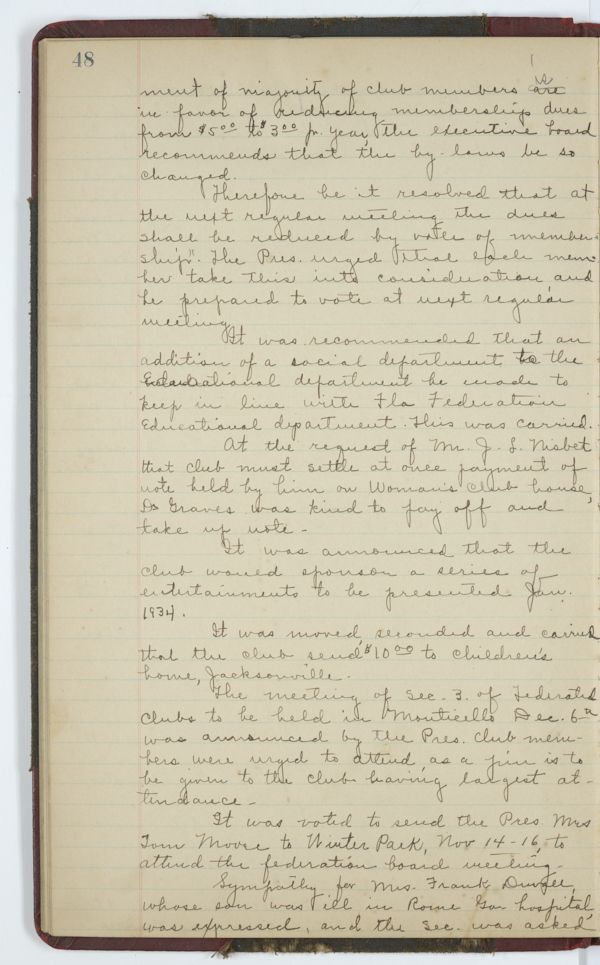 48
ment of majority of club members is are
in favor of reducing membership dues
from $5.00 to $3.00 pr. year, the executive board
recommends that the by-laws be so
changed.
Therefore be it resolved that at
the next regular meeting the dues
shall be reduced by vote of member-
ship". The Pres. urged that each mem-
ber take this into consideration and
be prepared to vote at next regular
meeting.
It was recommended that an
addition of a social department to the
Educational department be made to
keep in line with Fla Federation
Educational department. This was carried.
At the request of Mr. J. L. Nisbet
that club must settle at once payment of
note held by him on Woman's Club house,
Dr Graves was kind to pay off and
take up note -
It was announced that the
club would sponsor a series of
entertainments to be presented Jan.
1934.
It was moved, seconded and carried
that the club send $10.00 to Children's
home, Jacksonville.
The meeting of Sec. 3. of Federated
Clubs to be held in Monticello Dec. 6th
was announced by the Pres. Club mem-
bers were urged to attend, as a pin is to
be given to the club having largest at-
tendance -
It was voted to send the Pres. Mrs
Tom Moore to Winter Park, Nov 14-16, to
attend the federation board meeting -
Sympathy for Mrs. Frank
whose son was ill in Rome Ga hospital,
was expressed, and the Sec. was asked